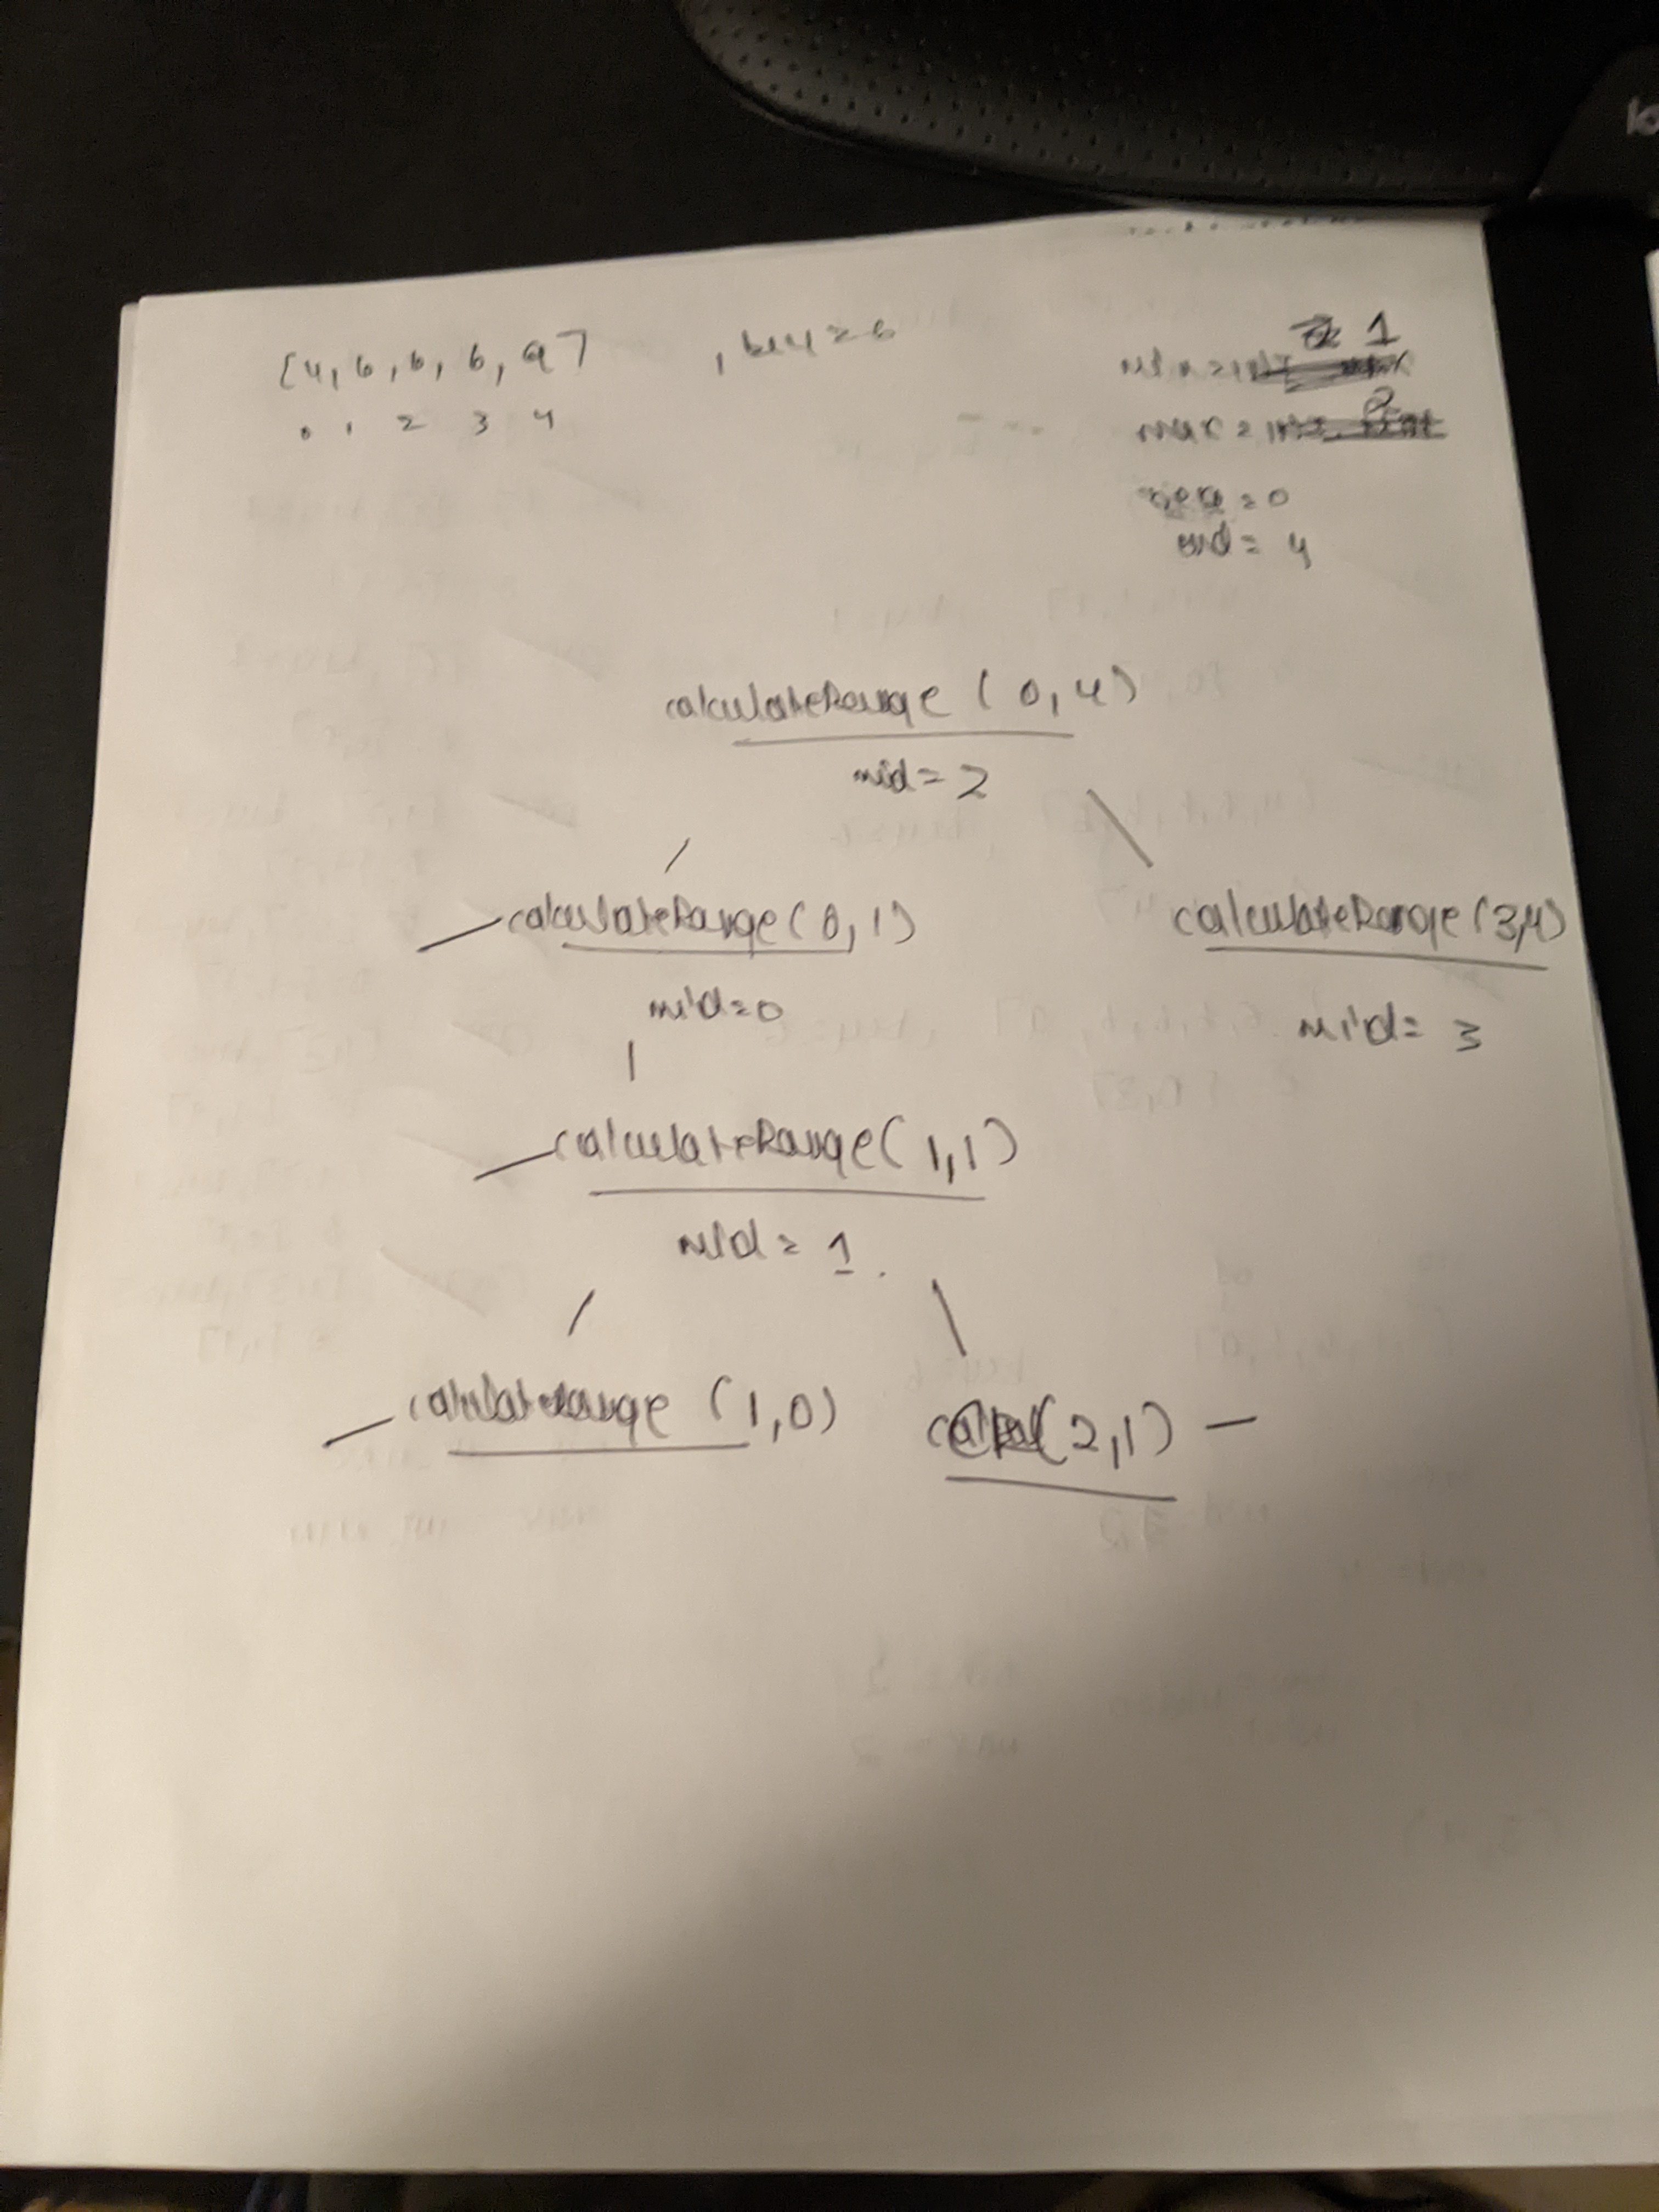 [4, 6, 6, 6, 9] , key = 6
0 1 2 3 4
1
min =
2
max =
= 0
end = 4
calculateRange (0, 4)
mid = 2
calculateRange (0, 1)
calculateRange (3, 4)
mid = 0
mid = 3
calculateRange (1, 1)
mid = 1
calculateRange (1, 0)
(2, 1)